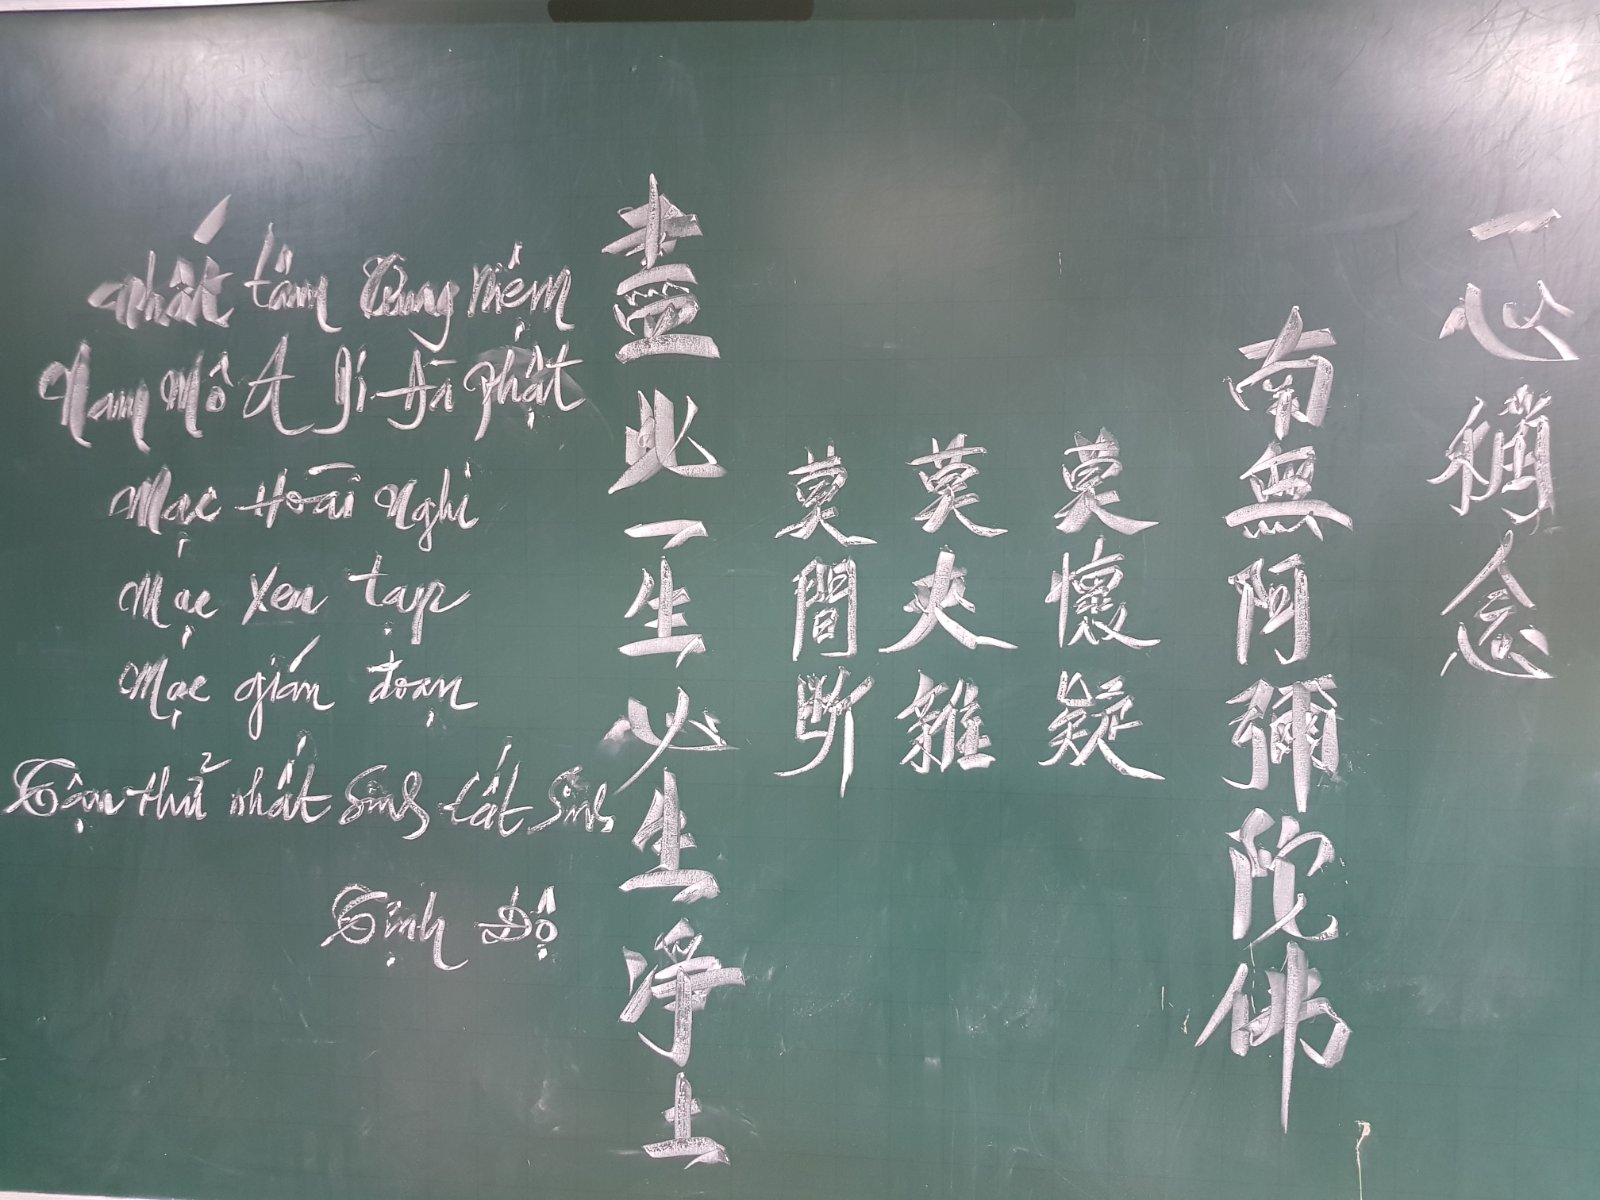 一心稱念
南無阿彌陀佛
莫懷疑
莫夾雜
莫間斷
盡此一生必生淨土
Nhất tâm xưng niệm
Nam Mô A Di Đà Phật
Mạc Hoài Nghi
Mạc xen tạp
Mạc gián đoạn
Tận thử nhất sinh tất sinh
Tịnh Độ